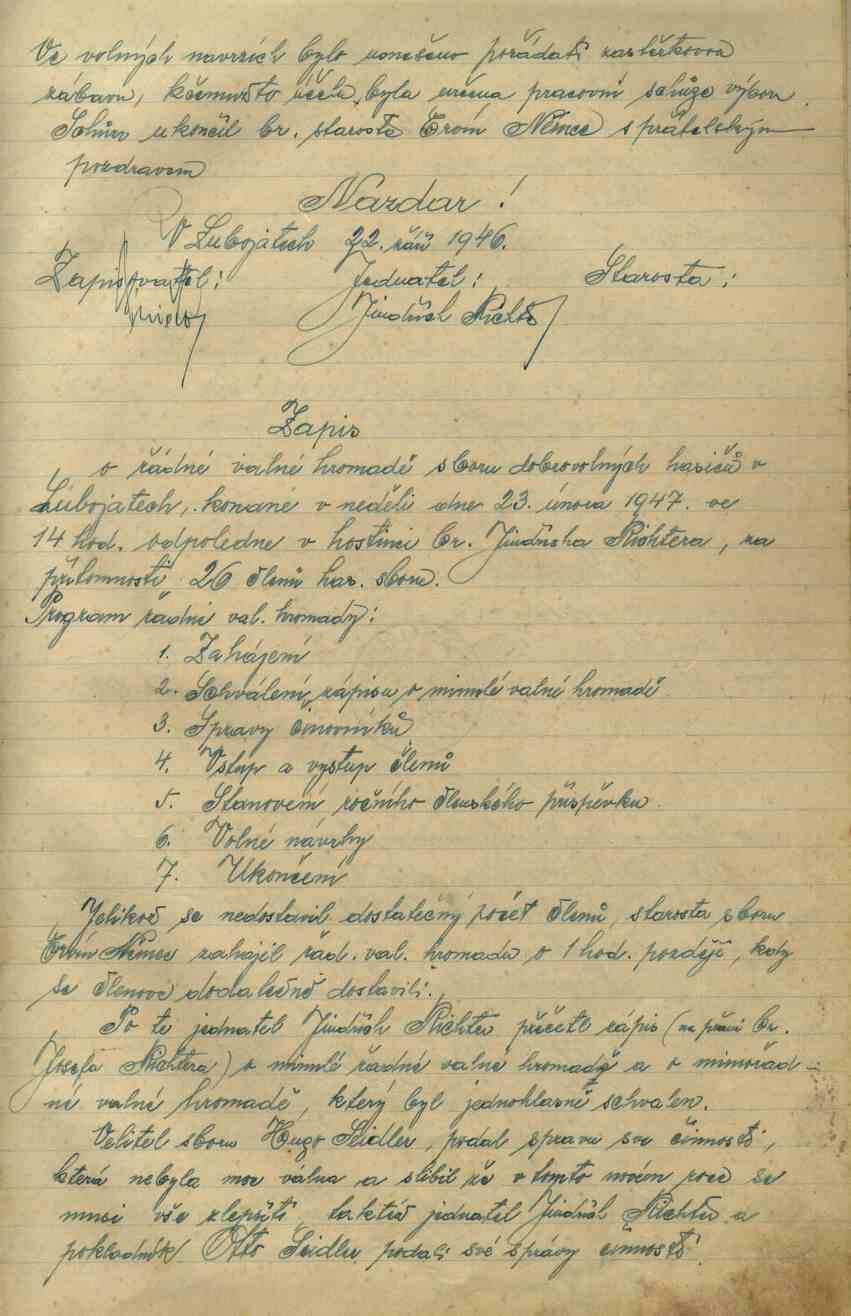 Ve volných navrzích bylo usnešeno pořádati
zábavu, kčemužto účelu byla určena pracovní schůze výboru
Schůzi ukončil br. starosta Ervín Němec s přátelským
pozdravem
Nazdar!
V Lubojatech 22. září 1946.
Zapisovatel: Jednatel: Starosta:
Jindřich Richtr
Zapis
o řádné valné hromadě sboru dobrovolných hasičů v
Lubojatech, konané v neděli dne 23. února 1947. ve
14 hod. odpoledne v hostinci br. Jindřicha Richtera, za
přítomnosti 26 členů has. sboru.
Program řadné val. hromady:
1. Zahájení
2. Schválení zápisu o minulé valné hromadě
3. Spravy činovníků
4. Vstup a vystup členů
5. Stanovení ročního členského příspěvku.
6. Volné návrhy
7. Ukončení
Jelikož se nedostavil dostatečný počet členů, starosta sboru
Ervín Němec zahájil řád. val. hromadu o 1 hod. později, kdy
se členové dodatečně dostavili.
Po te jednatel Jindřich Richter přečetl zápis (na přání br.
Josefa Richtera) o minulé řadné valné hromadě a o mimořád-
né valné hromadě, který byl jednohlasně schvalen.
Velitel sboru Hugo Seidler, podal spravu sve činnosti,
která nebyla moc válna a slíbil že v tomto novém roce se
musí vše zlepšiti, taktéž jednatel Jindřich Richter a
pokladník Otto Seidler podali své správy činnosti.